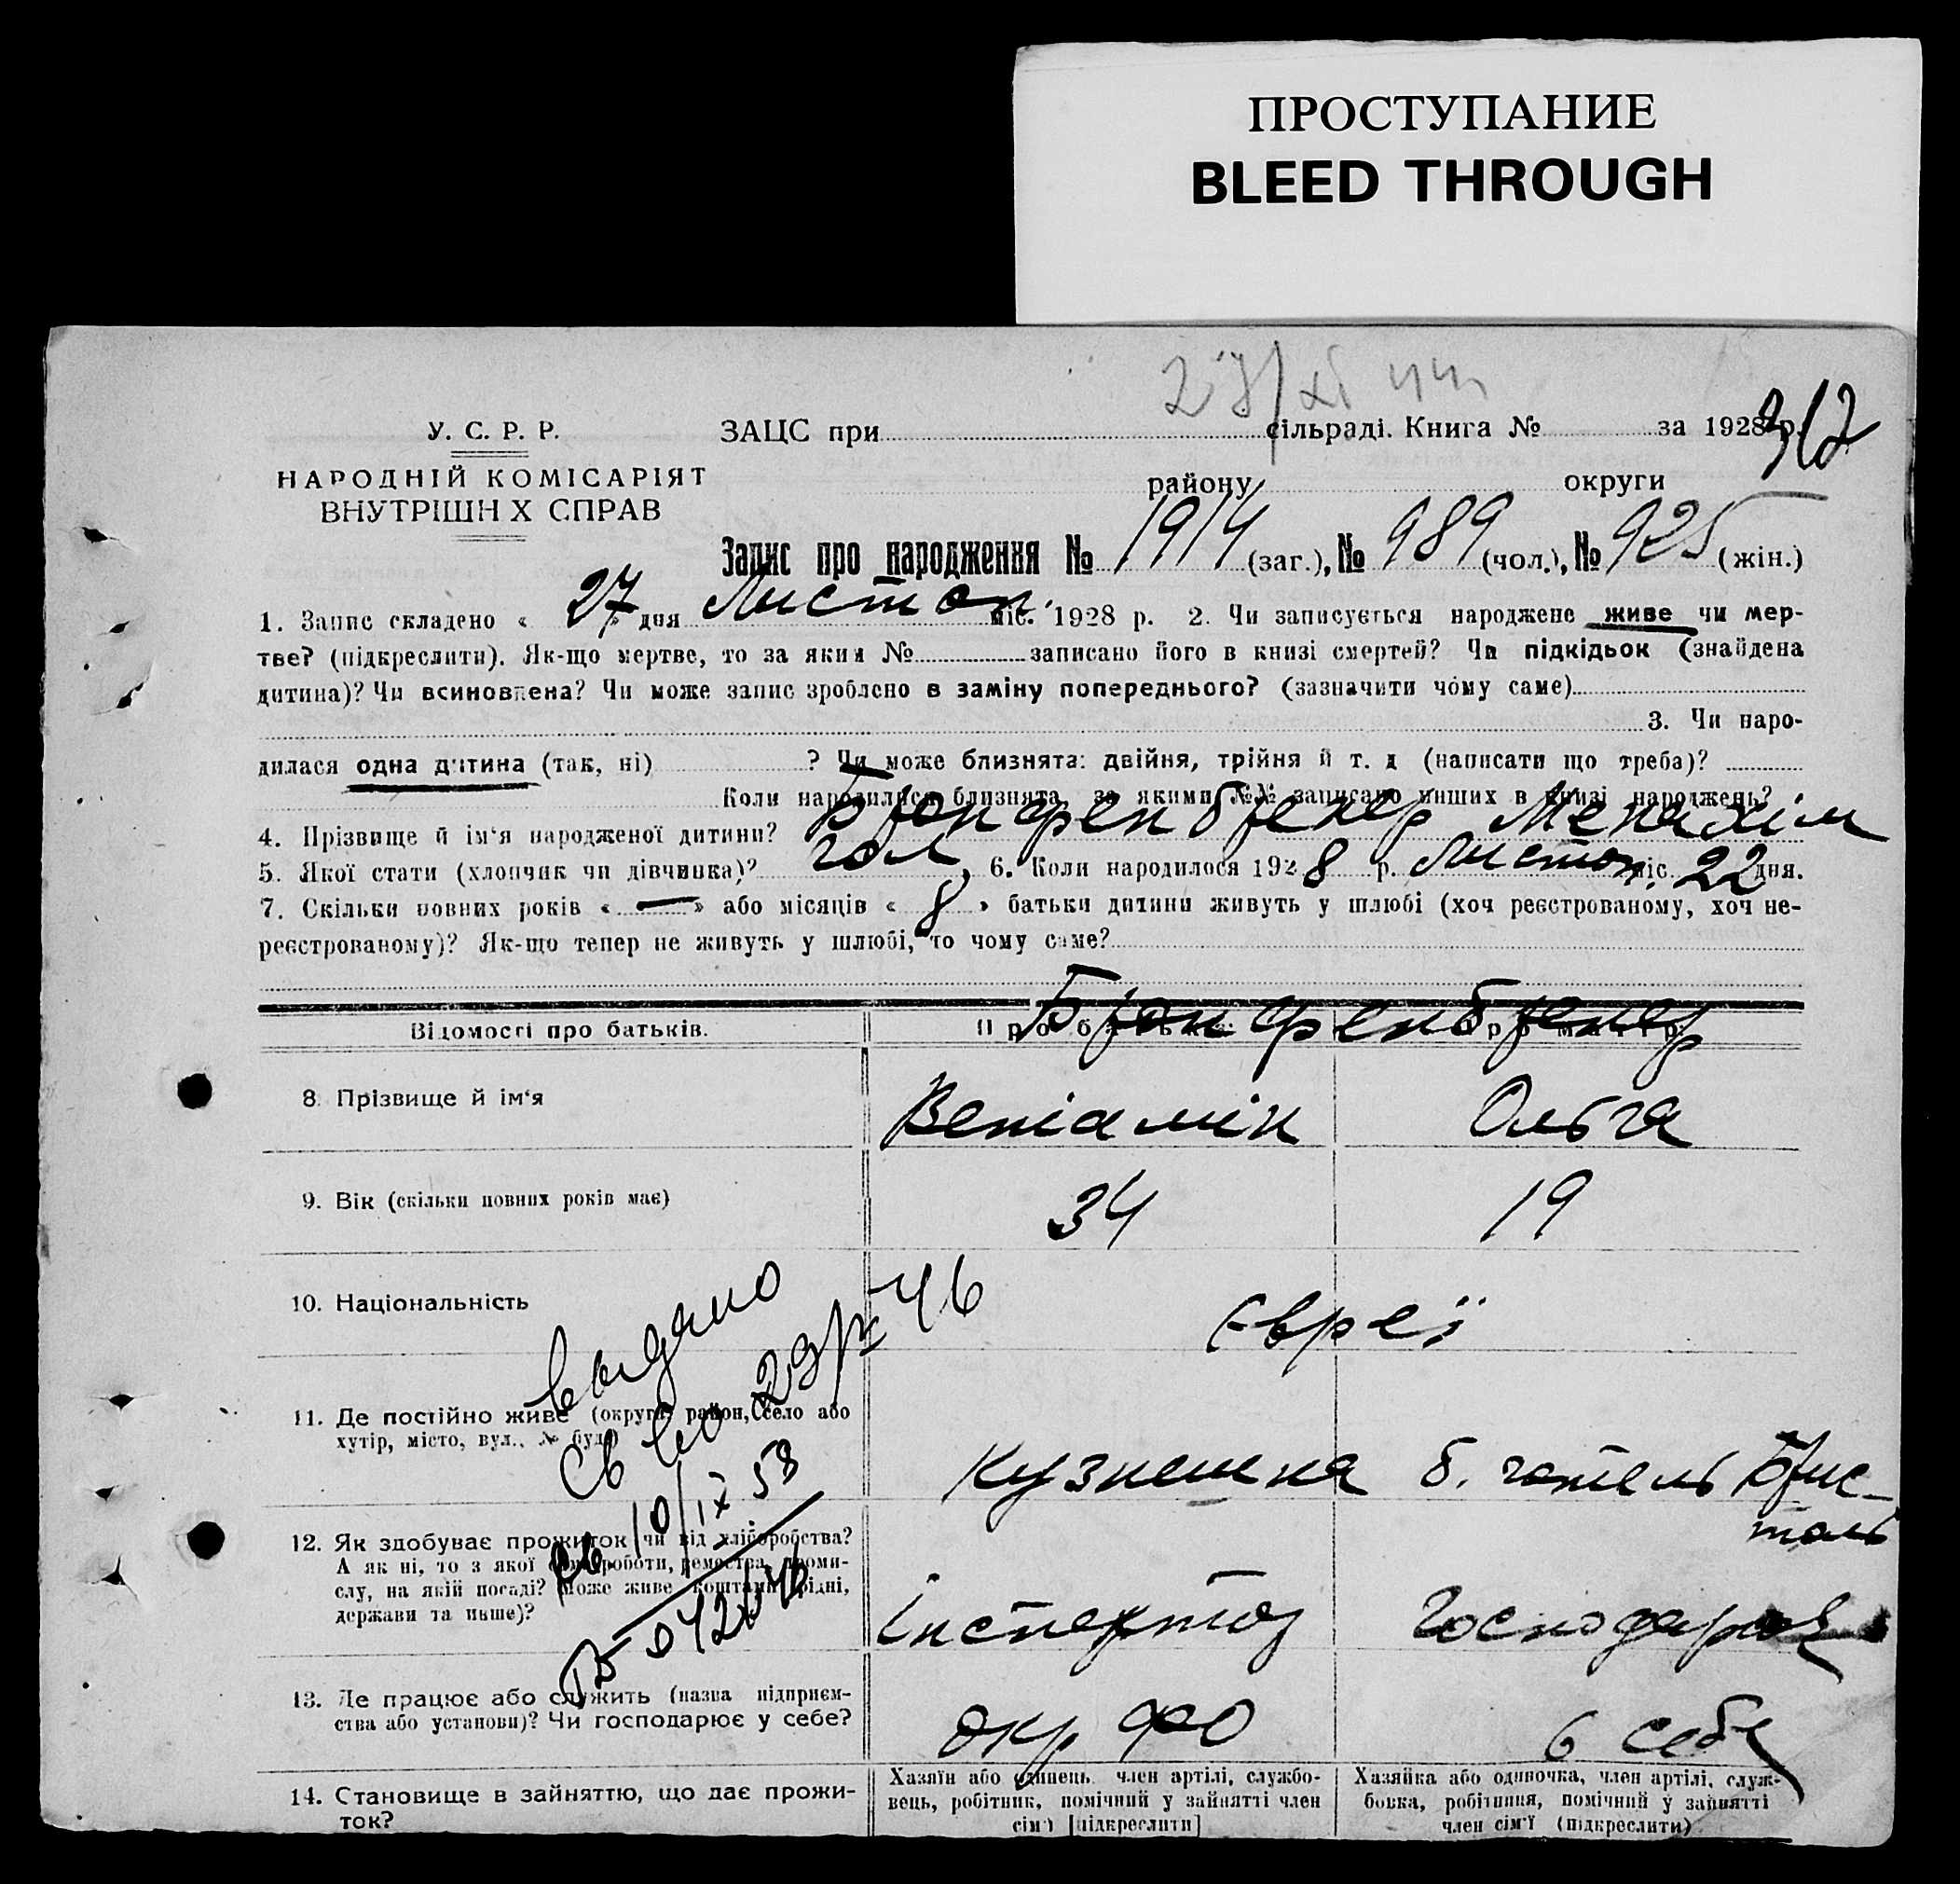 ПРОСТУПАНИЕ
BLEED THROUGH
312
У. С. Р. Р.
НАРОДНІЙ КОМІСАРІЯТ
ВНУТРІШН Х СПРАВ
ЗАЦС при сільраді. Книга № за 1928 р.
району округи
Запис про народження № 1914 (заг.), № 989 (чол.), № 925 (жін.)
1. Запис складено « 27 » дня Листоп. міс. 1928 р. 2. Чи записується народжене живе чи мер-
тве? (підкреслити). Як-що мертве, то за яким № записано його в книзі смертей? Чи підкідьок (знайдена
дитина)? Чи всиновлена? Чи може запис зроблено в заміну попереднього? (зазначити чому саме)
3. Чи наро-
дилася одна дитина (так, ні) ? Чи може близнята: двійня, трійня й т. д (написати що треба)?
Коли народилися близнята, за якими №№ записано инших в книзі народжень?
4. Прізвище й ім'я народженої дитини? Бронфенбренер Менахім
5. Якої стати (хлопчик чи дівчинка)? чол, 6. Коли народилося 1928 р. Листоп. міс. 22 дня.
7. Скільки повних років « — » або місяців « 8 » батьки дитини живуть у шлюбі (хоч реєстрованому, хоч не-
реєстрованому)? Як-що тепер не живуть у шлюбі, то чому саме?
Відомості про батьків. Про батька: Про матір:
Бронфенбренер
8. Прізвище й ім'я Веніамін Ольга
9. Вік (скільки повних років має) 34 19
10. Національність Євреї
выдано
св во 29/IV 46
10/IX 58
11. Де постійно живе (округа, район, село або
хутір, місто, вул., № буд.)
Кузнешна б. готель Брис-
толь
12. Як здобуває прожиток чи від хліборобства?
А як ні, то з якої саме роботи, ремества, проми-
слу, на якій посаді? Може живе коштами рідні,
держави та инше)?
Інспектор Господарка
13. Де працює або служить (назва підприєм-
ства або установи)? Чи господарює у себе?
окр ФО в себе
14. Становище в зайняттю, що дає прожи-
ток?
Хазяїн або одинець, член артілі, службо-
вець, робітник, помічний у зайнятті член
сім'ї [підкреслити]
Хазяйка або одиночка, член артілі, служ-
бовка, робітниця, помічний у зайнятті
член сім'ї (підкреслити)